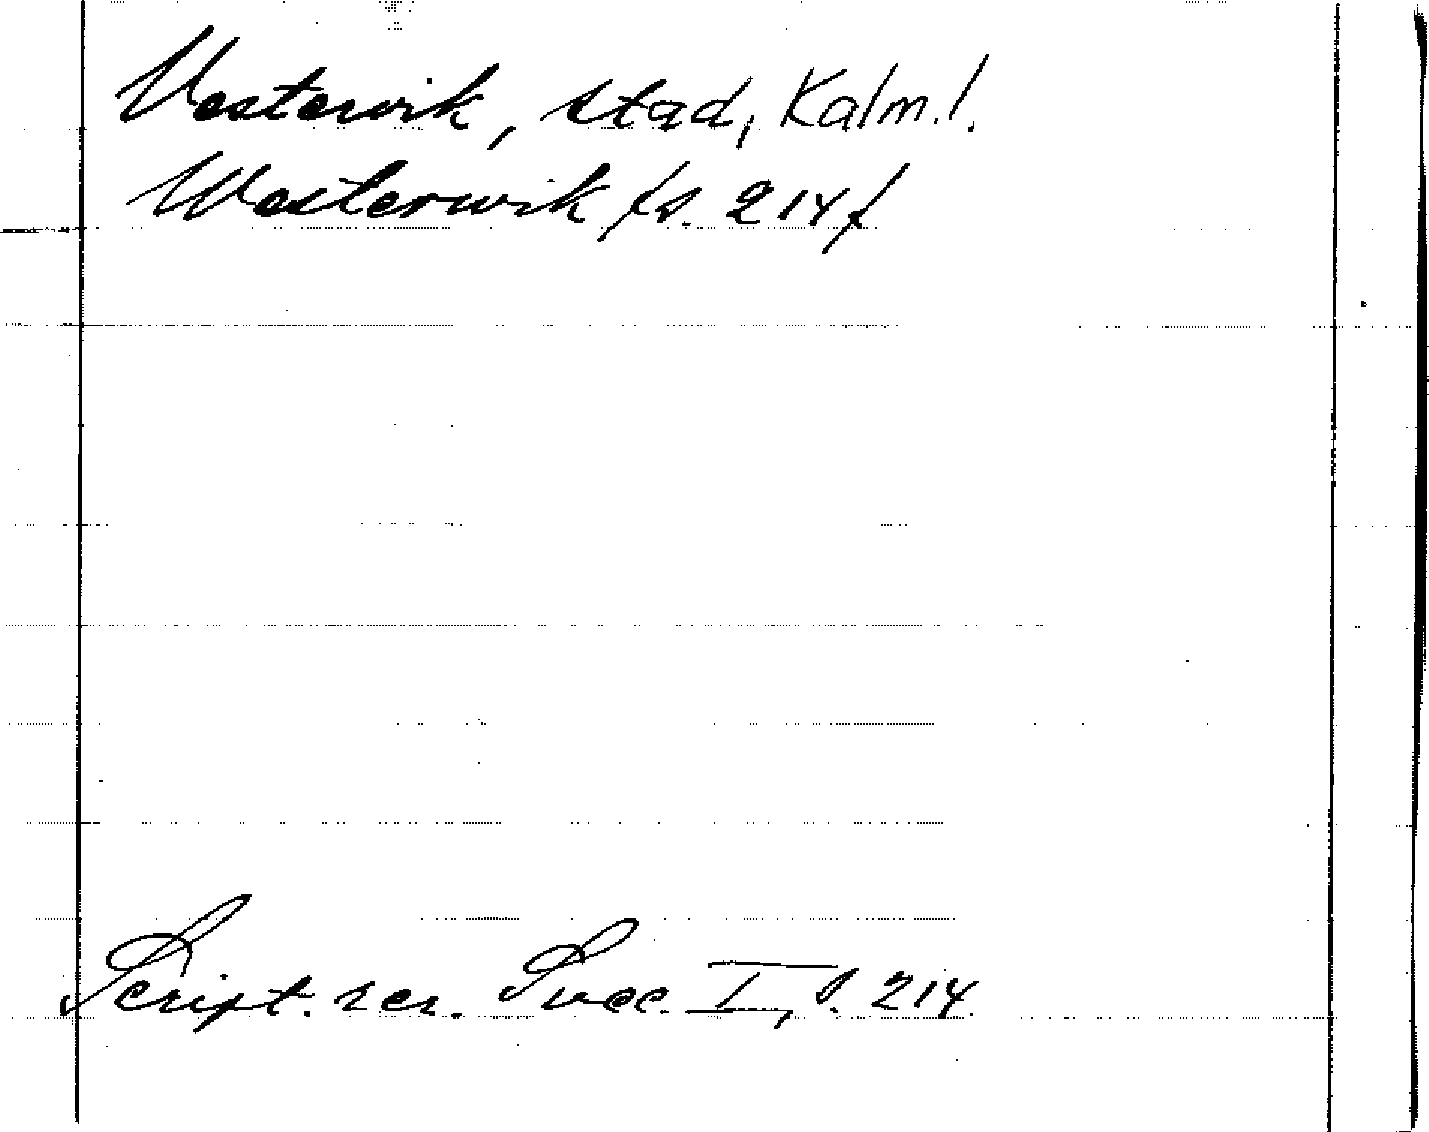 Vestervik, stad, Kalm. l.
Westerwik (s. 214)
Script. rer. Svec. I, s. 214.